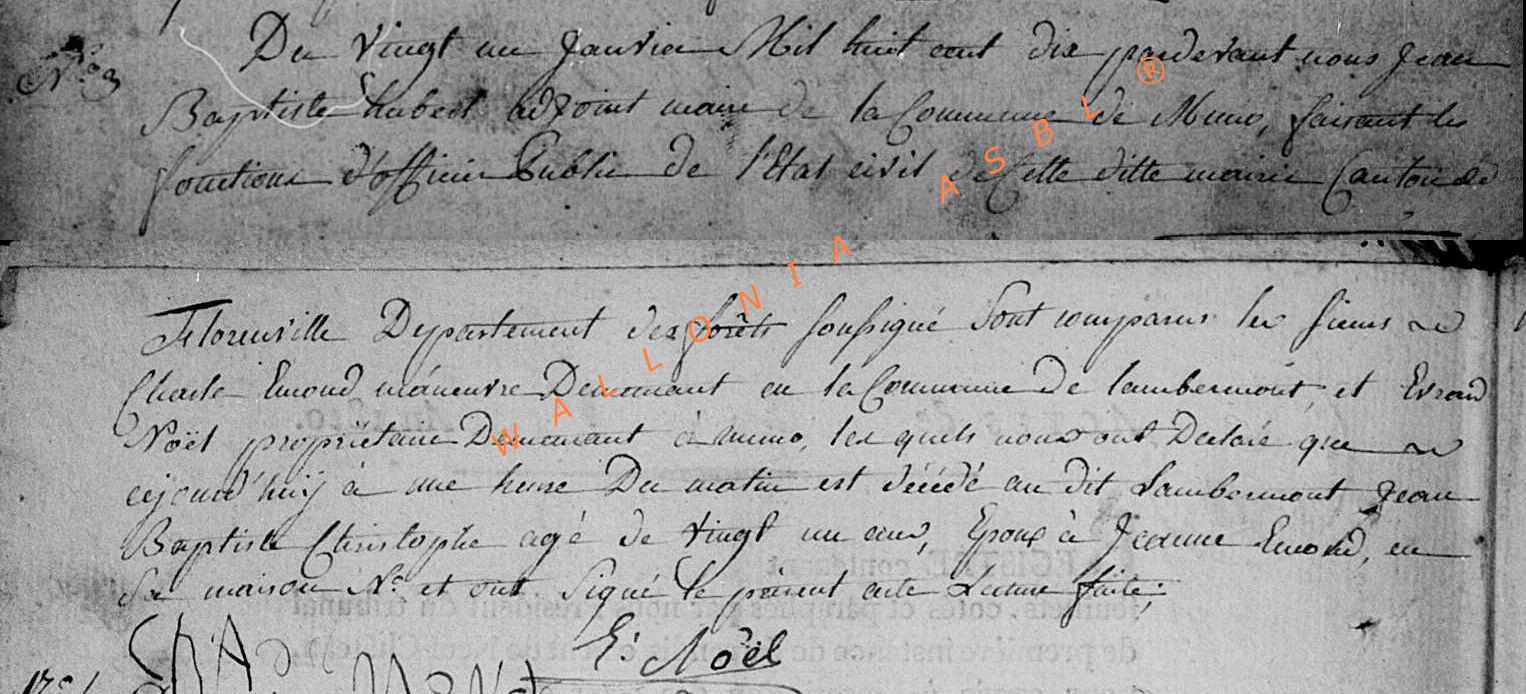 N° 3
Du Vingt un Janvier Mil huit cent dix pardevant nous Jean
Baptiste hubert adjoint maire de la Commune de Muno, faisant les
fonctions d'officier Public de l'Etat civil de Cette ditte mairie Canton de
Florenville Departement des forêts soussigné Sont comparus les sieurs
Charle Emond maneuvre Demeurant en la Commune De lambermont, et Evrard
Noël propriétaire Demeurant à muno, les quels nous ont Declaré que
cejourd'huij à une heure Du matin est décédé au dit Lambermont Jean
Baptiste Christophe agé de vingt un ans, Epoux à Jeanne Emond, en
Sa maison N° et ont Signé le présent acte Lecture faite;
E: Noël
WALLONIA ASBL ®